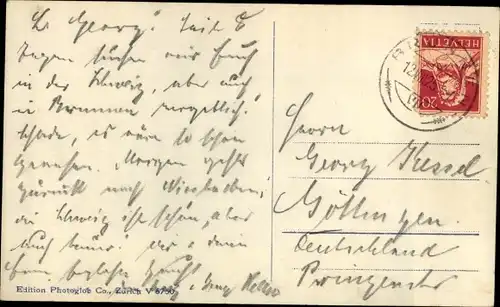 L. Georg! Seit 8
Tagen suchen wir Euch
in der Schweiz, aber auch
in Brunnen vergeblich.
Schade, es wäre so schön
gewesen. Morgen geht's
zurück nach Wiesbaden,
die Schweiz ist schön, aber
auch teuer.
Herrn
Georg Kessel
Göttingen
Deutschland
Prinzenstr
HELVETIA
20
Edition Photoglob Co., Zürich V 6750